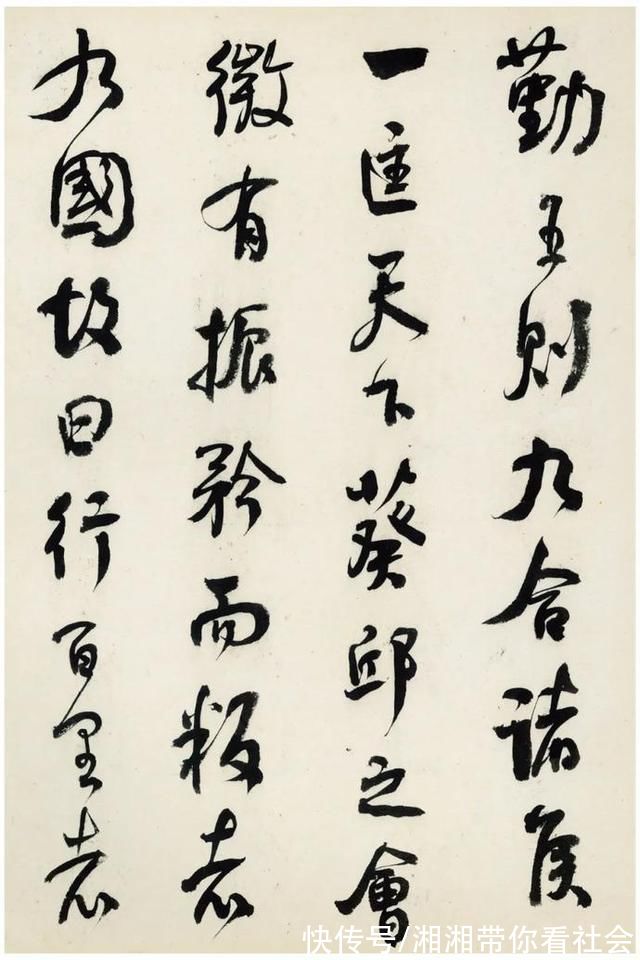 勤王則九合諸侯
一匡天下葵邱之會
微有振矜而叛者
九國故曰行百里者
快传号/湘湘带你看社会